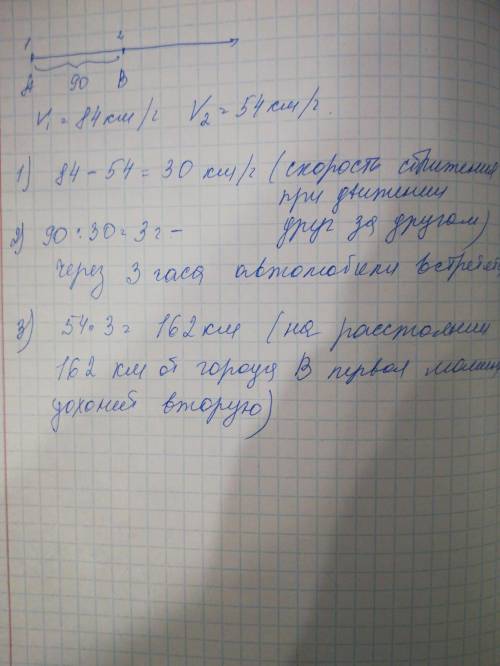 1 2
A 90 B
V₁ = 84 км/ч V₂ = 54 км/ч.
1) 84 - 54 = 30 км/ч (скорость сближения
при движении
2) 90 : 30 = 3 ч - друг за другом)
Через 3 часа автомобили встретят
3) 54 · 3 = 162 км (на расстоянии
162 км от города В первая машин
догонит вторую)